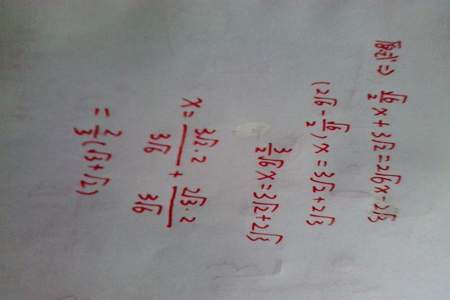 原式⇒ √6/2 x + 3√2 = 2√6x - 2√3
(2√6 - √6/2)x = 3√2 + 2√3
3/2 √6 x = 3√2 + 2√3
x = 3√2·2/3√6 + 2√3·2/3√6
= 2/3 (√3 + √2)